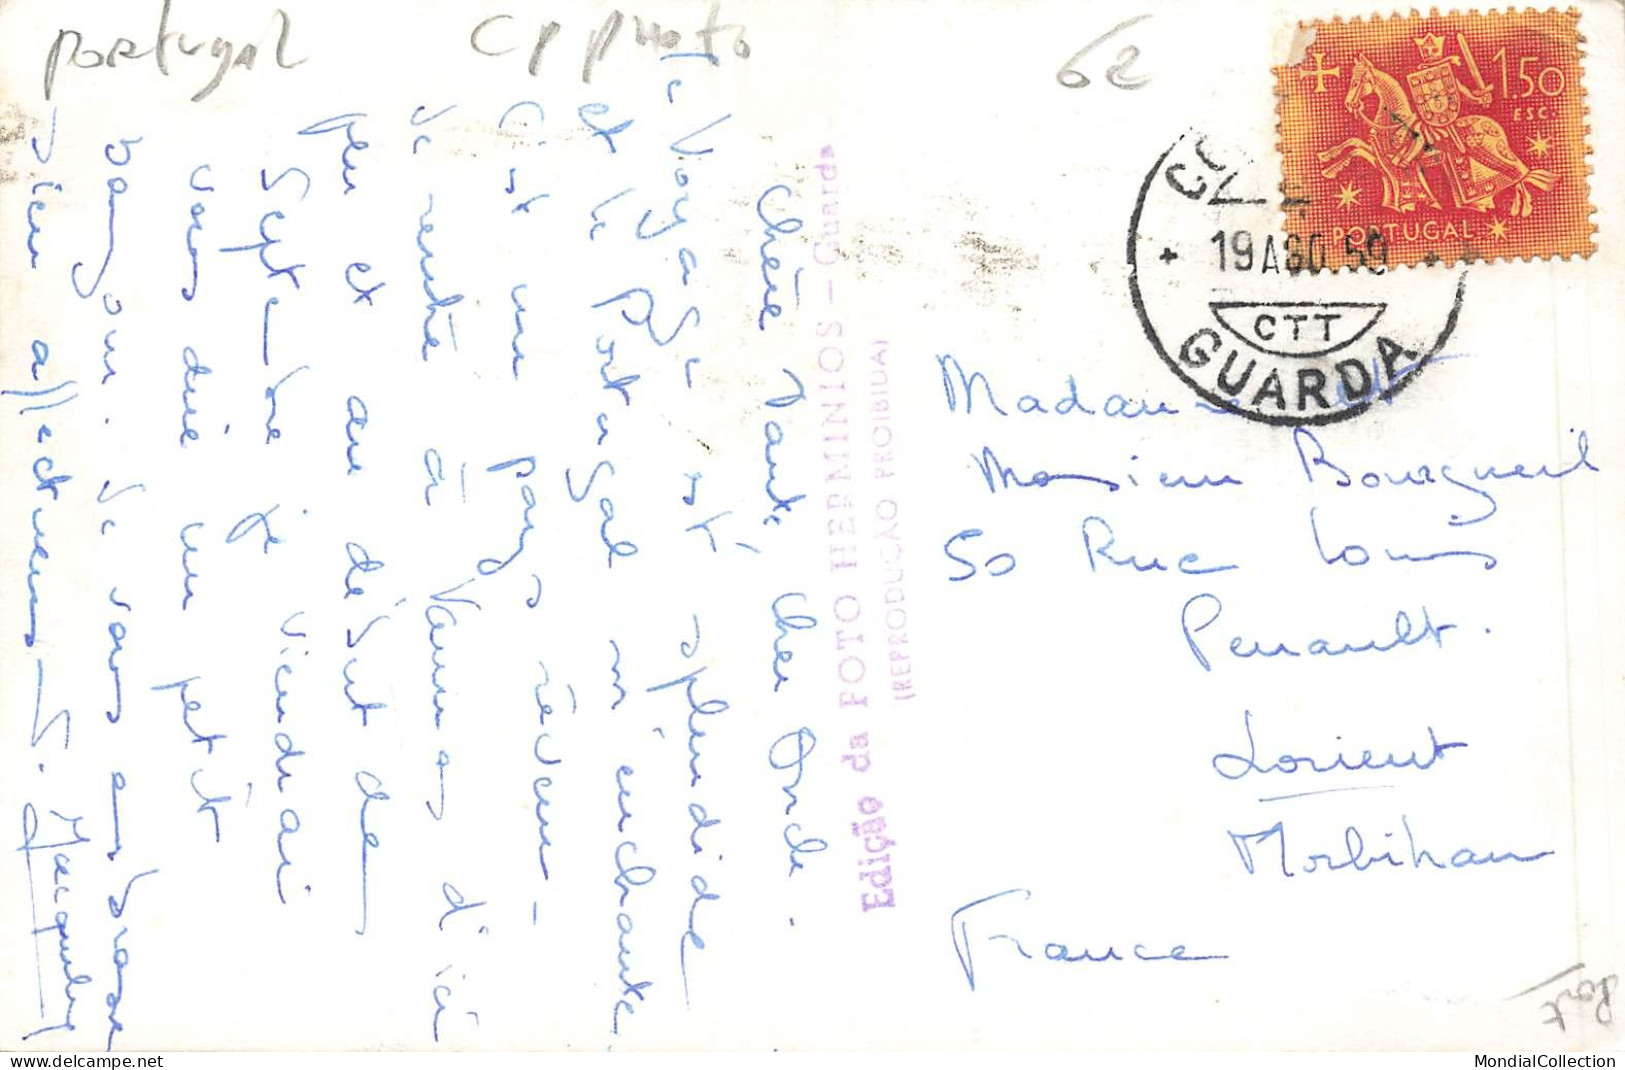 Portugal
cp photo
62
1.50
ESC.
PORTUGAL
19 AGO.59
CTT
GUARDA
Chère Tante, cher Oncle.
Le Voyage est splendide
et le Portugal m'enchante,
C'est un pays rêvé
Je rentre à Vannes d'ici
peu et au début de
Septembre je viendrai
vous dire un petit
bonjour. Je vous embrasse
bien affectueus
Edição da FOTO HERMINIOS - Guarda
(REPRODUÇÃO PROIBIDA)
Madame et
Monsieur Bourgneuil
50 Rue Louis
Perrault.
Lorient
Morbihan
France
Port
delcampe.net
MondialCollection